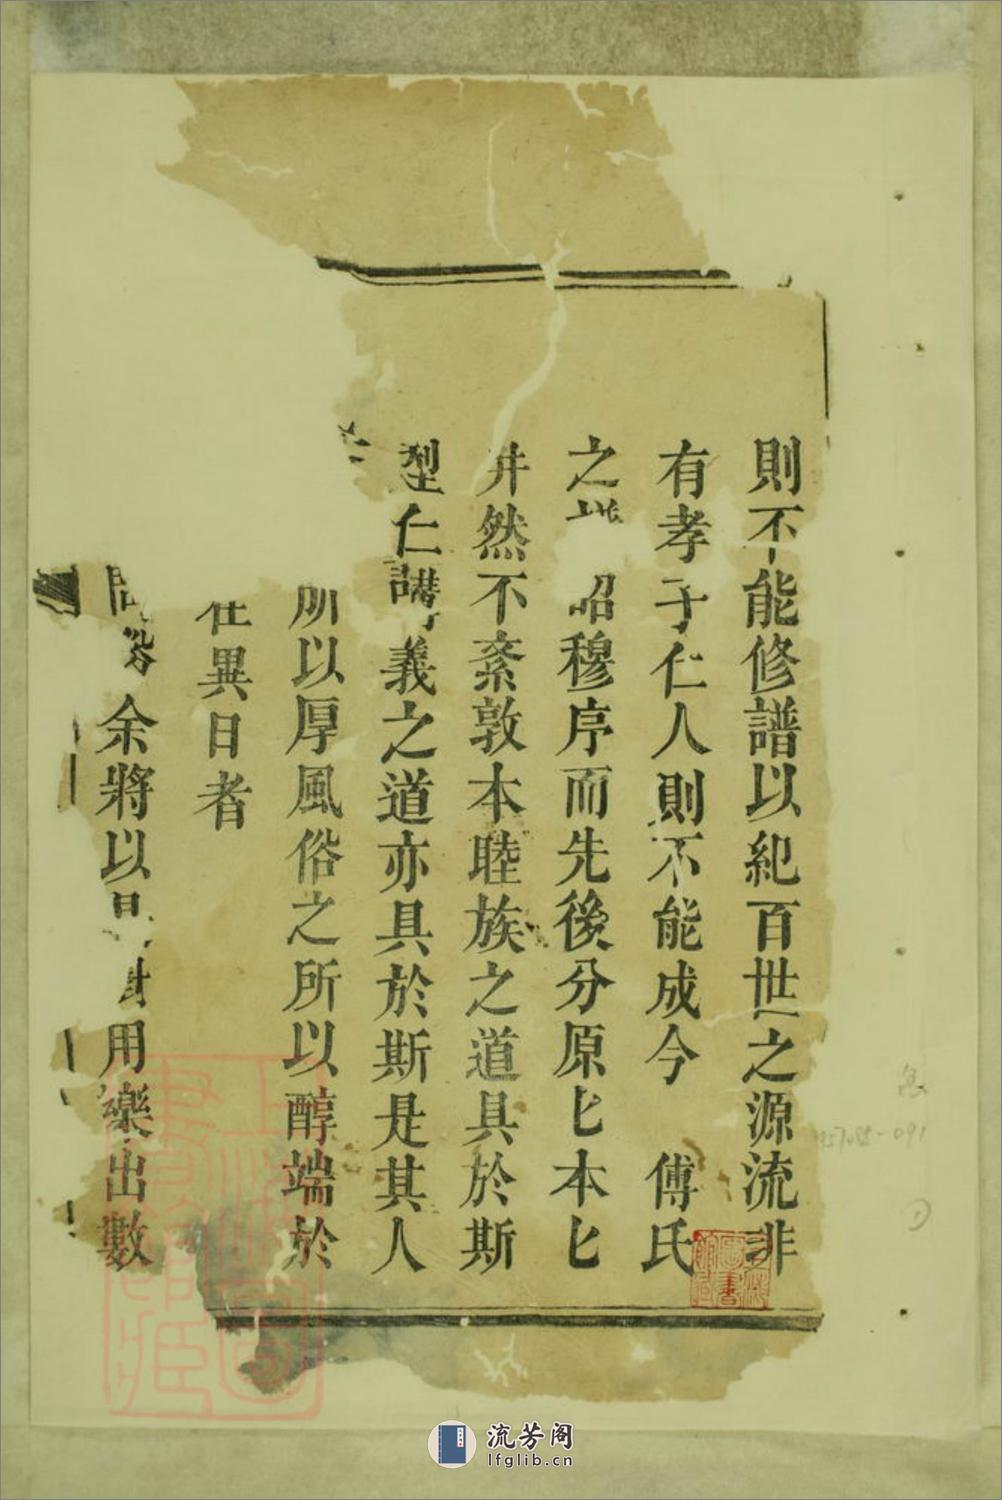 則不能修譜以紀百世之源流非
有孝子仁人則不能成今 傅氏
之 昭穆序而先後分原匕本匕
井然不紊敦本睦族之道具於斯
型仁講義之道亦具於斯是其人
所以厚風俗之所以醇端於
在異日者
余將以 用樂出數
上海圖書館藏
流芳阁
lfglib.cn